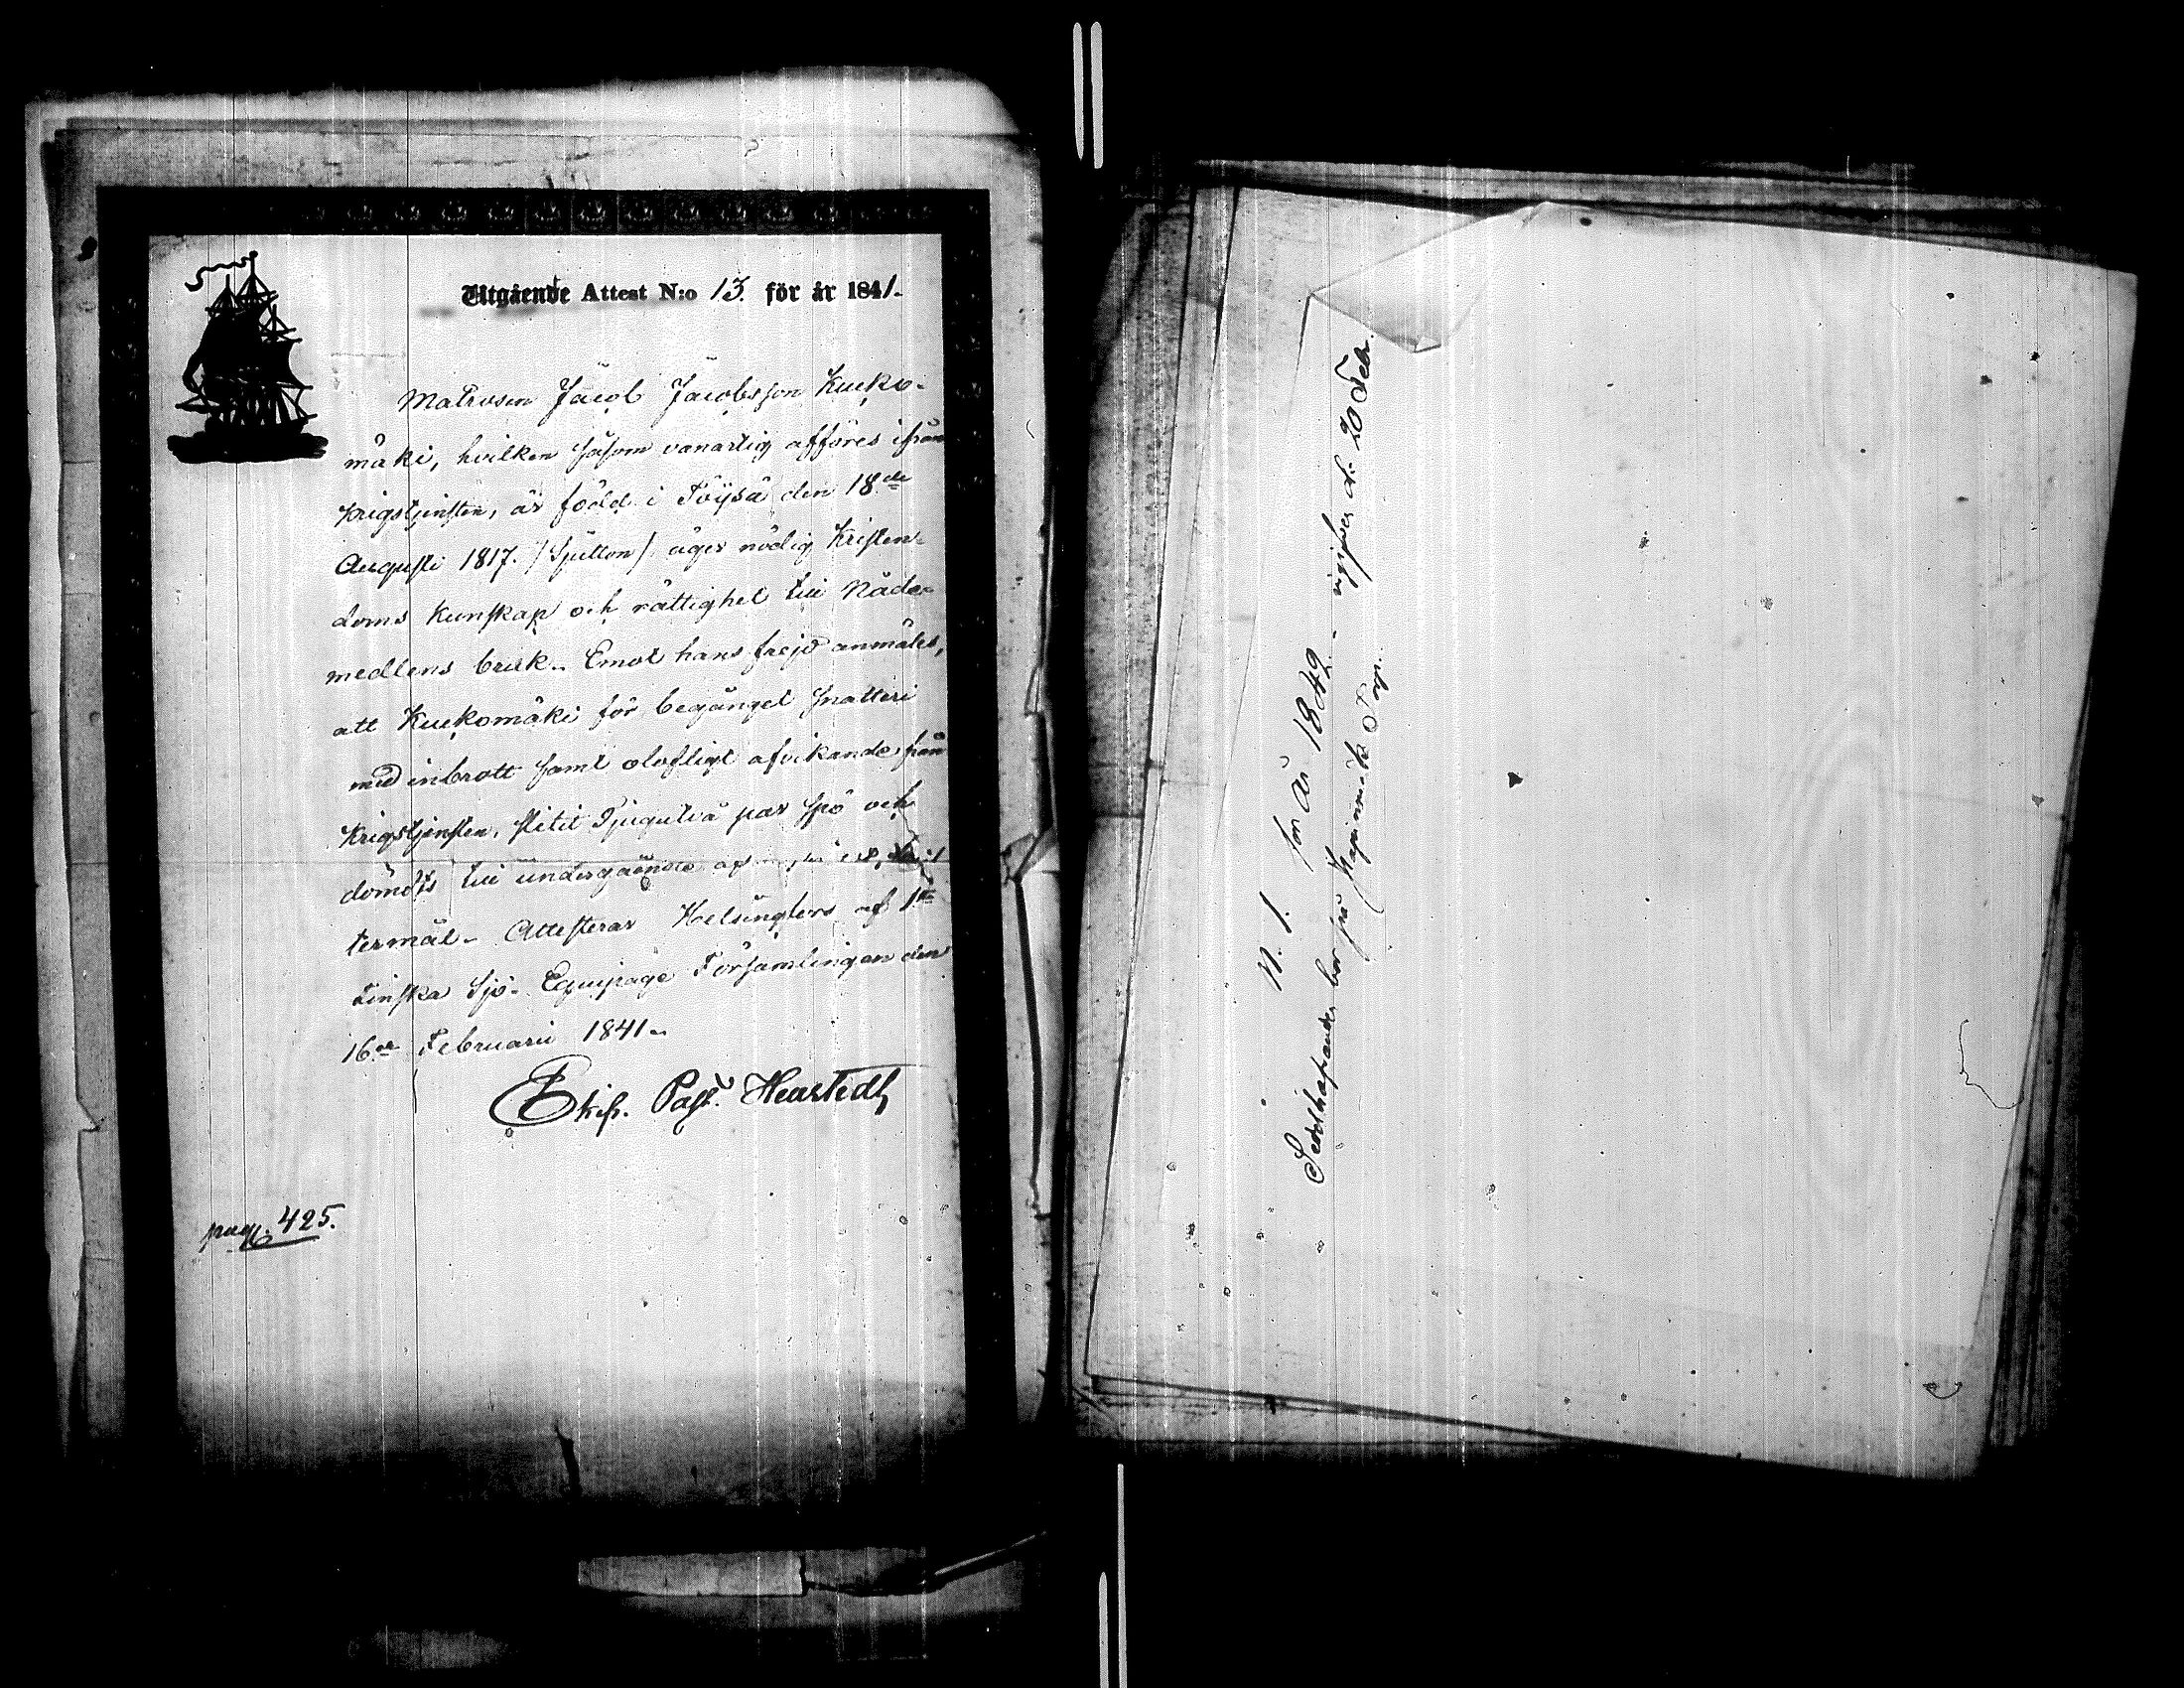 Utgående Attest N:o 13. för år 1841.
Matrosen Jacob Jacobsson Kucko-
mäki, hvilken såsom vanartig afföres ifrån
krigstjensten, är född i Töysä den 18de
Augusti 1817. /Sjutton/ äger nödig Kristen-
doms kunskap och rättighet till Nåde-
medlens bruk. Emot hans frejd anmäles,
att Kuckomäki för begånget snatteri
med inbrott samt olofligt afvikande från
Krigstjensten, slitit Tjugutvå par spö och
dömdts till undergående af
termål. Attesterar Helsingfors af 1sta
Finska Sjö-Equipage Församlingen den
16de Februarii 1841.
Ekip. Past.
pag. 425.
N. 1. för år 1842 - uppgifves d. 20 Febr.
bor på